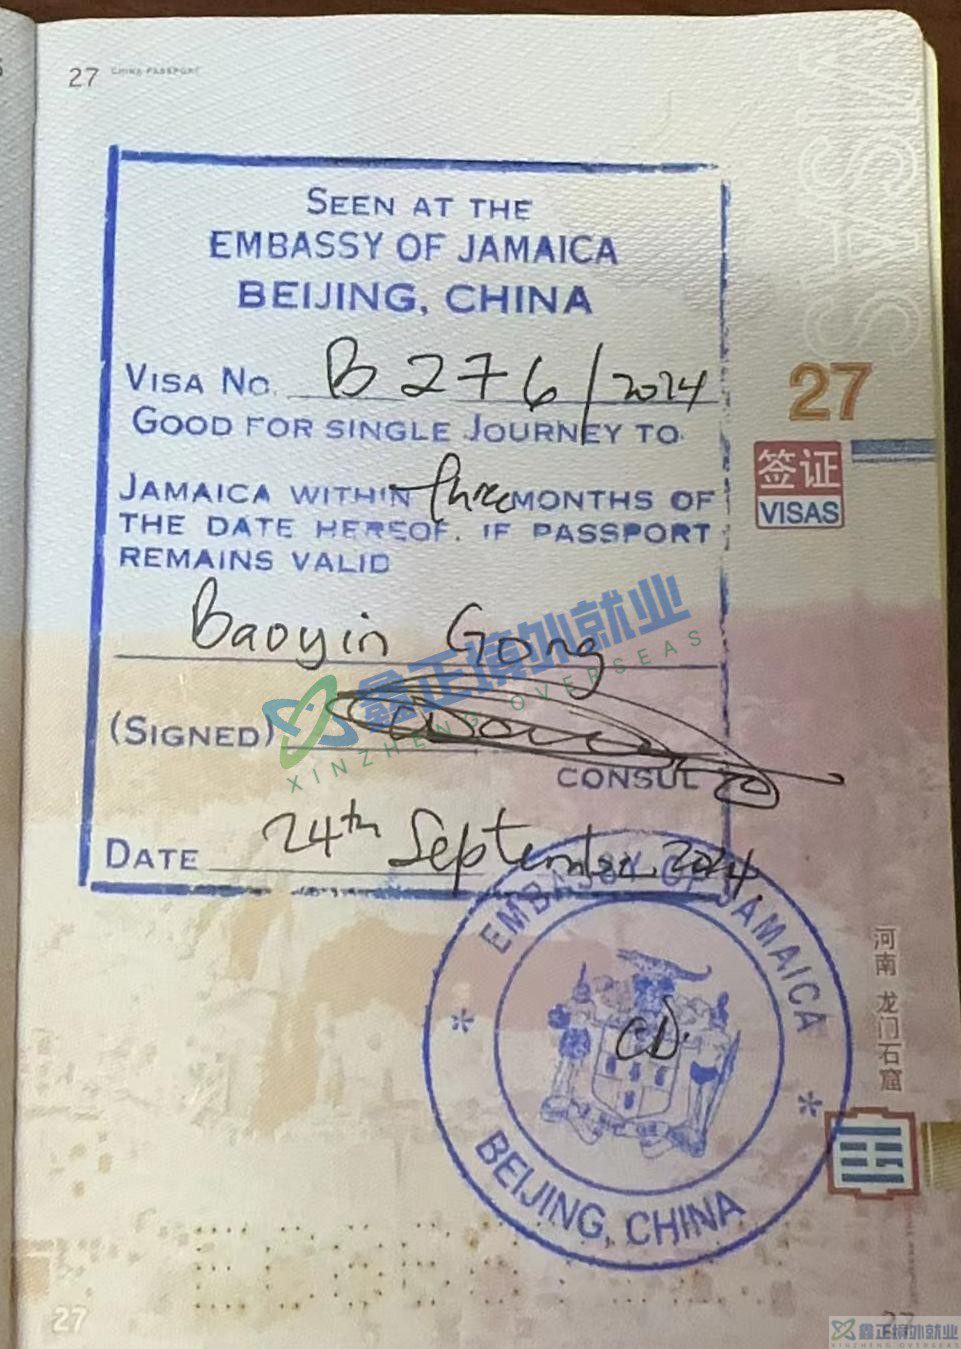 27 CHINA PASSPORT
VISAS
SEEN AT THE
EMBASSY OF JAMAICA
BEIJING, CHINA
VISA NO. B276/2024
GOOD FOR SINGLE JOURNEY TO
JAMAICA WITHIN three MONTHS OF
THE DATE HEREOF, IF PASSPORT
REMAINS VALID
Baoyin Gong
(SIGNED)
CONSUL
DATE 24th September, 2024
27
签证
VISAS
鑫正境外就业
XINZHENG OVERSEAS
EMBASSY OF JAMAICA
CD.
BEIJING, CHINA
河南 龙门石窟
27
27
鑫正境外就业
XINZHENG OVERSEAS